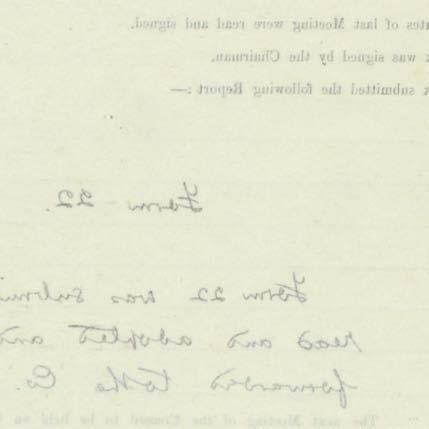 utes of last Meeting were read and signed.
k was signed by the Chairman.
k submitted the following Report :—
Form 22.
Form 22 was submi
read and adopted and
forwarded to the Co.
The next Meeting of the Council to be held on